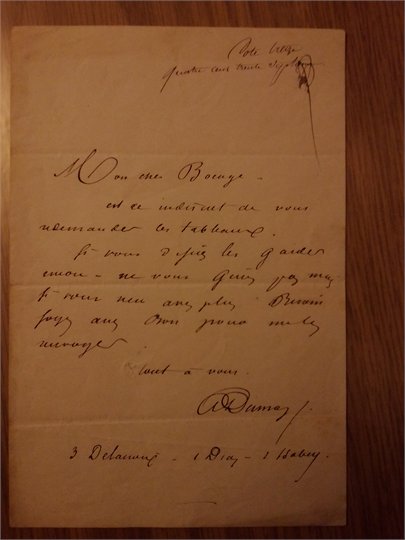 Mon cher Bocage -
est ce indiscret de vous
redemander les tableaux.
Si vous desirez les garder
encore - ne vous gênez pas mais
Si vous n'en avez plus Besoin
soyez assez Bon pour me les
renvoyer
tout à vous.
ADumas
3 Delacroix - 1 Diaz -